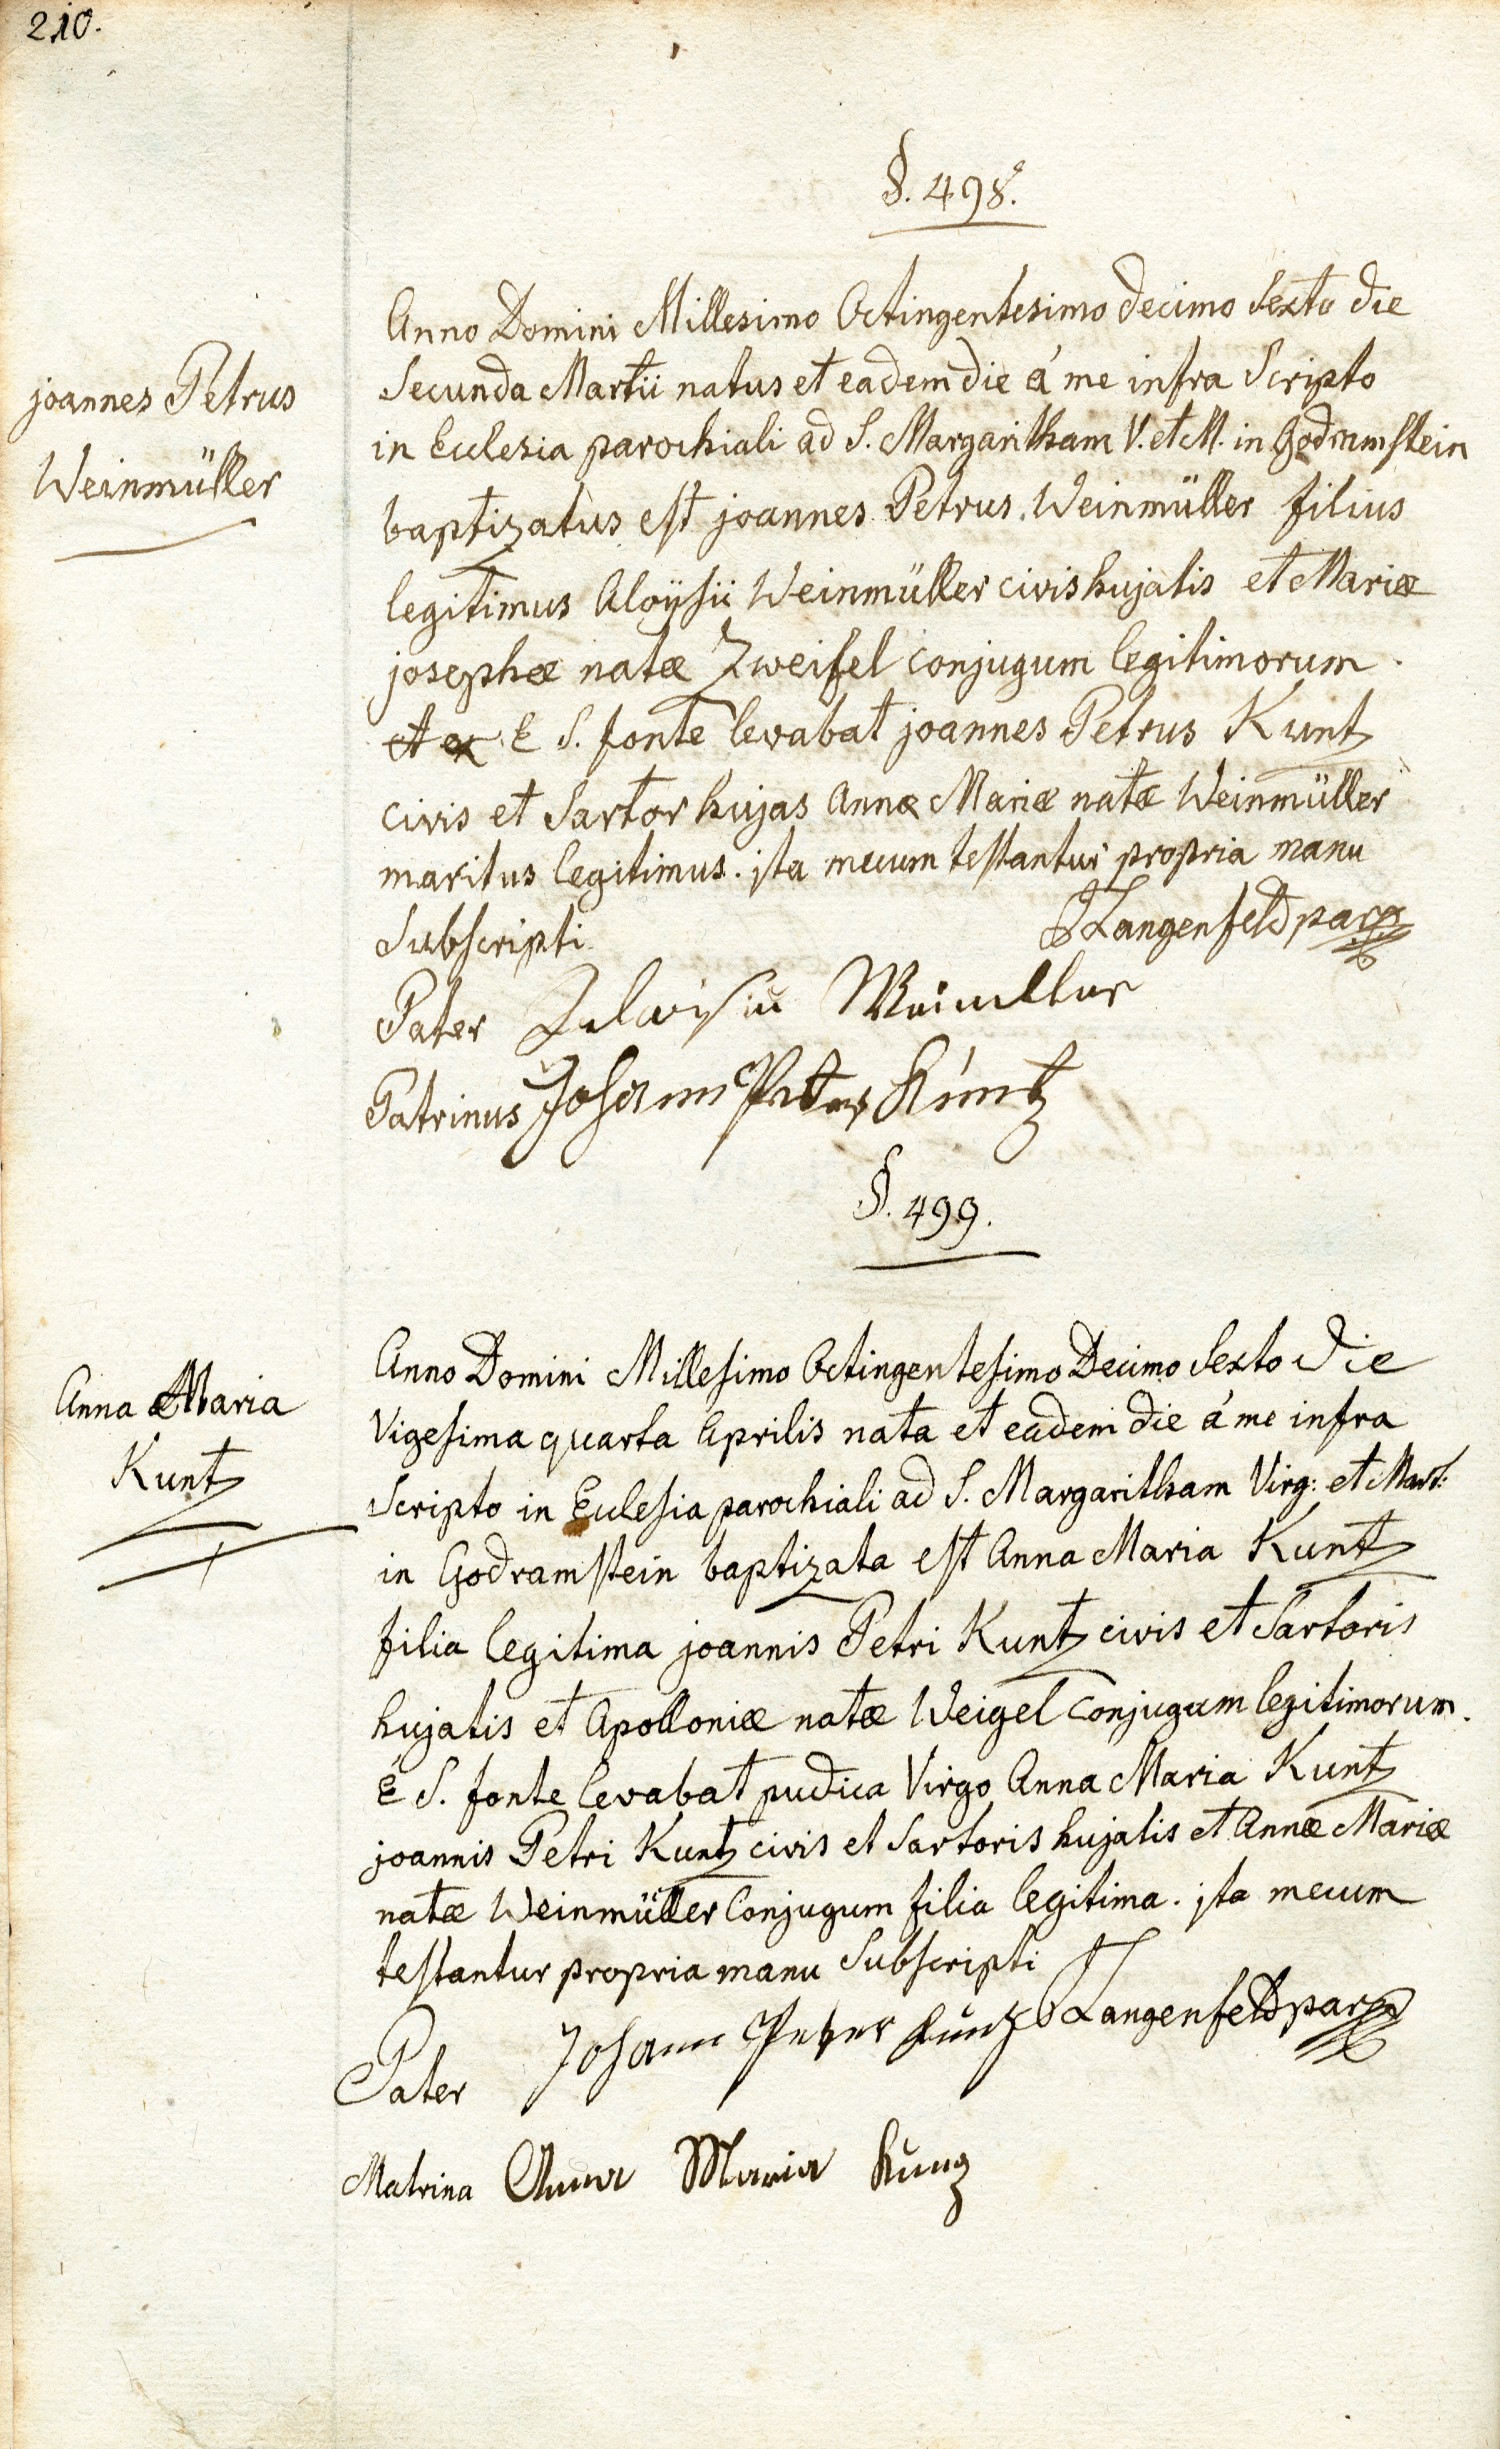 210.
§. 498.
joannes Petrus
Weinmüller
Anno Domini Millesimo Octingentesimo decimo Sexto die
Secunda Martii natus et eadem die á me infra Scripto
in Ecclesia parochiali ad S. Margaritham V. et M. in Godramstein
baptizatus est joannes Petrus Weinmüller filius
legitimus Aloÿsii Weinmüller civis hujatis et Mariæ
josephæ natæ Zweifel conjugum legitimorum.
et ex E S. fonte levabat joannes Petrus Kuntz
civis et Sartor hujas Annæ Mariæ natæ Weinmüller
maritus legitimus. jta mecum testantur propria manu
Subscripti. Langenfeld par
Pater
Patrinus Johann Peter Kuntz
§. 499.
Anna Maria
Kuntz
Anno Domini Millesimo Octingentesimo Decimo Sexto Die
Vigesima quarta Aprilis nata et eadem die á me infra
Scripto in Ecclesia parochiali ad S. Margaritham Virg: et Mart:
in Godramstein baptizata est Anna Maria Kuntz
filia legitima joannis Petri Kuntz civis et Sartoris
hujatis et Apolloniæ natæ Weigel conjugum legitimorum.
É S. fonte levabat pudica Virgo Anna Maria Kuntz
joannis Petri Kuntz civis et Sartoris hujatis et Annæ Mariæ
natæ Weinmüller Conjugum filia legitima. jta mecum
testantur propria manu Subscripti
Pater Johann Peter Kunz Langenfeld par
Matrina Anna Maria Kunz